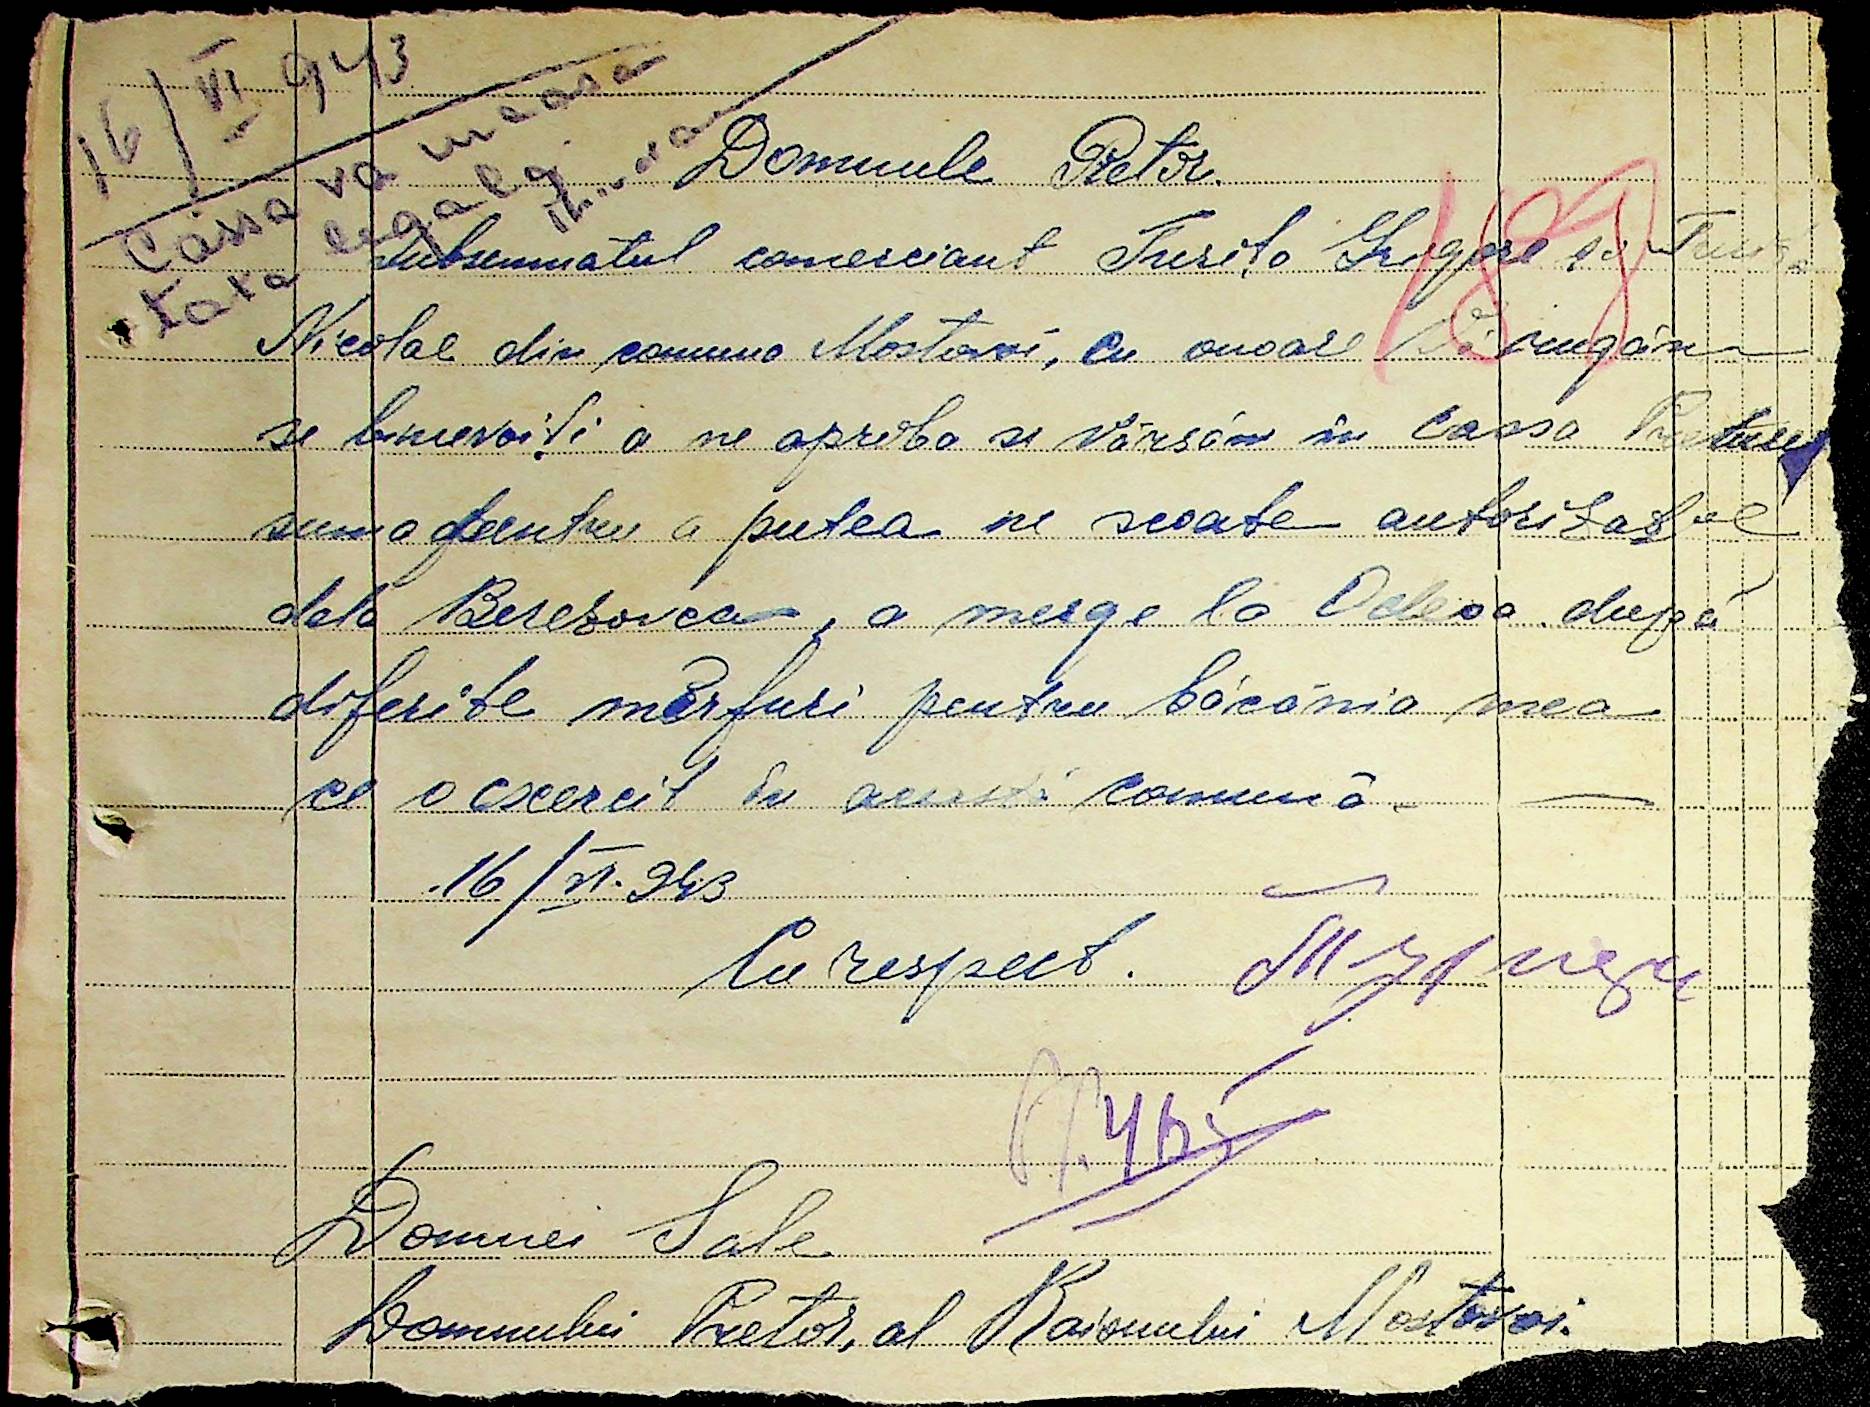 16/VI 943
Cassa va incasa
taxa legală
Domnule Pretor.
189
Subsemnatul comerciant Turilo Grigore și
Nicolae din comuna Mostovoi, cu onoare Vă rugăm
se binevoiți a ne aproba se vărsăm în Cassa Preturei
suma pentru a putea ne scoate
dela Berezovca, a merge la Odesa după
diferite mărfuri pentru băcănia mea
ce o exercit în acestă comună.
16/VI. 943
Cu respect.
Domnei Sale
Domnului Pretor, al Raionului Mostovoi.